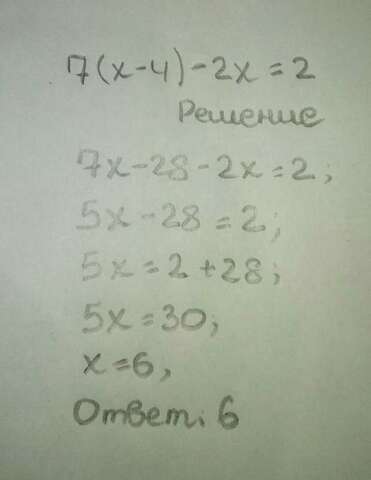 7(x-4)-2x=2
Решение
7x-28-2x=2;
5x-28=2;
5x=2+28;
5x=30;
x=6,
Ответ: 6